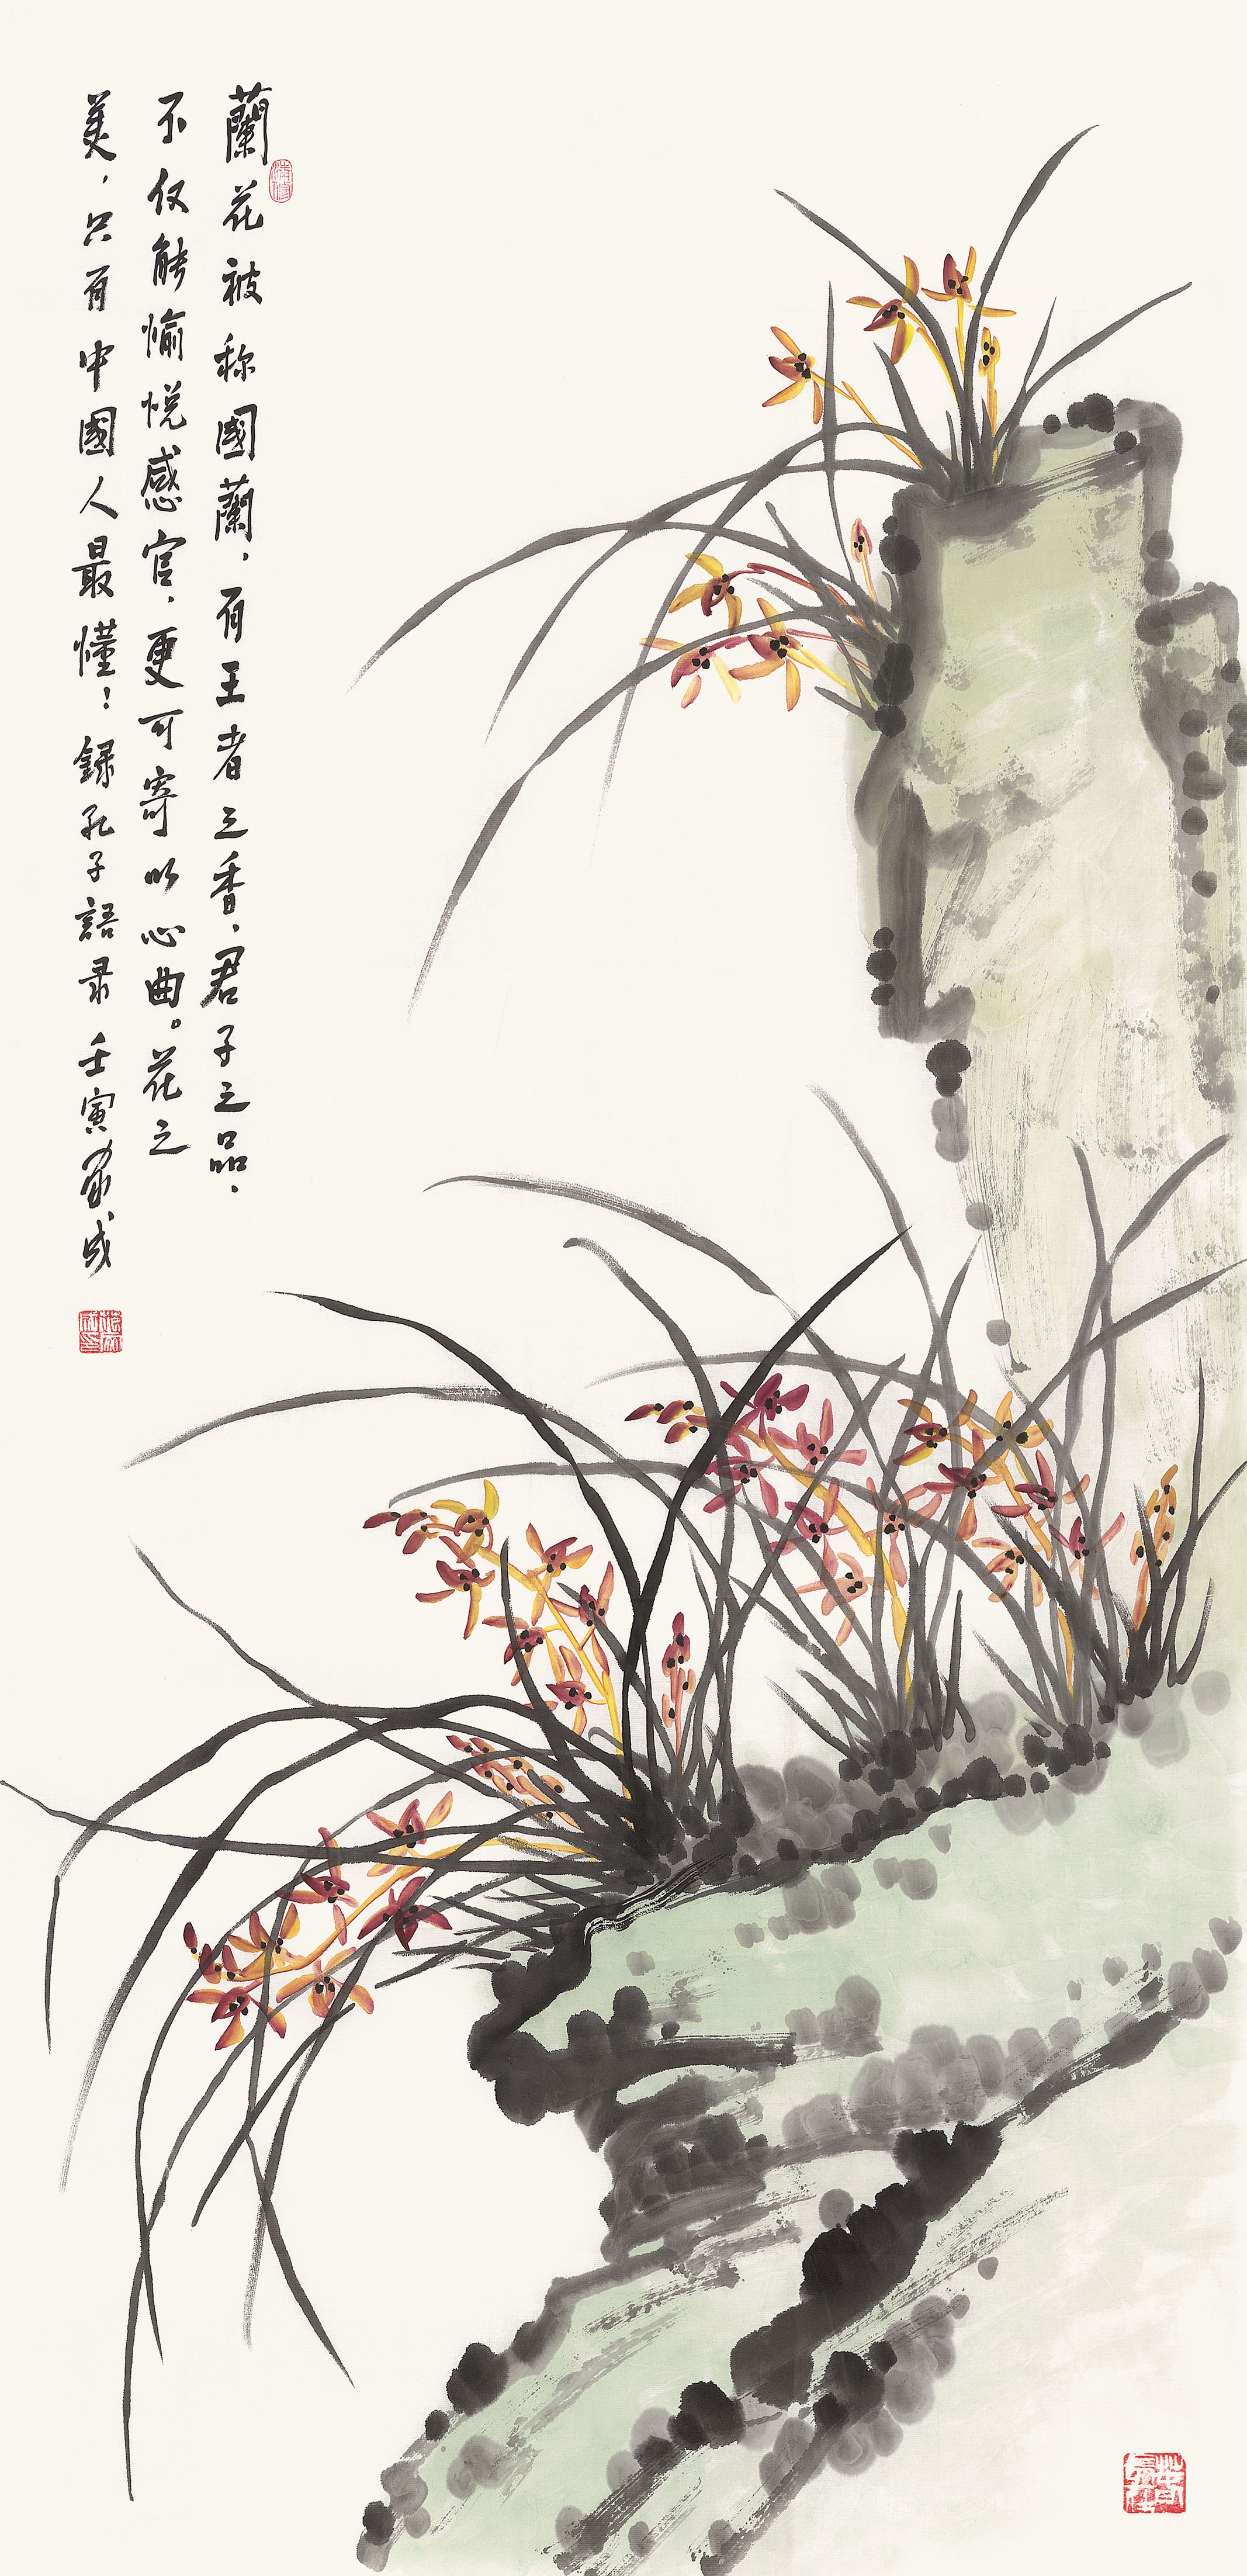 蘭花被称國蘭，有王者之香，君子之品，
不仅能愉悦感官，更可寄以心曲。花之
美，只有中國人最懂！録孔子語录 壬寅家成